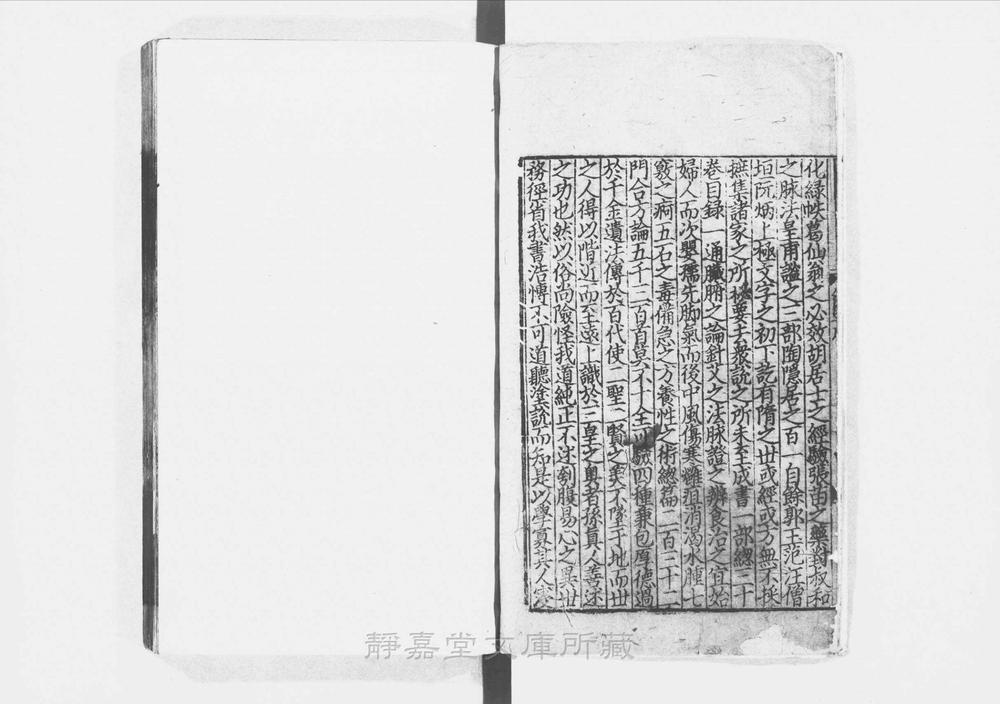 化綠帙葛仙翁之必效胡居士之經驗張苗之藥對叔和
之脉法皇甫謐之三部陶隱居之百一自餘郭玉范汪僧
垣阮炳上極文字之初下訖有隋之世或經或方無不採
摭集諸家之所祕要去衆說之所未至成書一部總三十
卷目録一通臓腑之論針艾之法脉證之辨食治之宜始
婦人而次嬰孺先脚氣而後中風傷寒癰疽消渴水腫七
竅之痾五石之毒備急之方養性之術總篇二百三十二
門合方論五千三百首莫不十全可驗四種兼包厚德過
於千金遺法傳於百代使二聖二賢之美不墜于地而世
之人得以階近而至遠上識於三皇之奥者孫真人善述
之功也然以俗尚險怪我道純正不述刳腹易心之異世
務徑省我書浩慱不可道聽塗說而知是以學寡其人
靜嘉堂文庫所藏